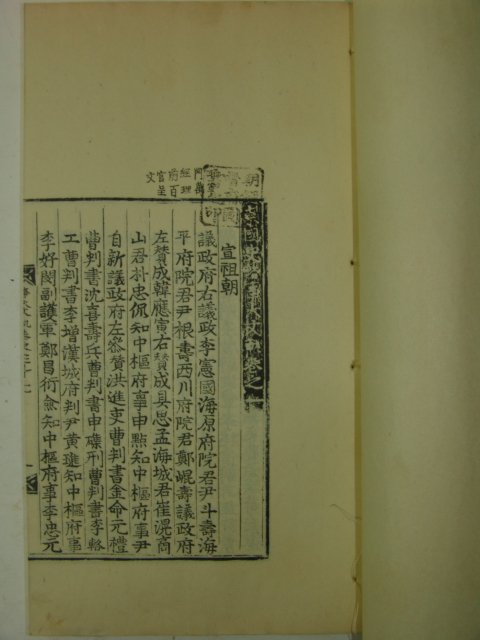 宣祖朝
議政府右議政李憲國海原府院君尹斗壽海
平府院君尹根壽西川府院君鄭崐壽議政府
左贊成韓應寅右贊成具思孟海城君崔滉商
山君朴忠侃知中樞府事申點知中樞府事尹
自新議政府左參贊洪進吏曹判書金命元禮
曹判書沈喜壽兵曹判書申磼刑曹判書李輅
工曹判書李增漢城府判尹黃璡知中樞府事
李好閔副護軍鄭昌衍僉知中樞府事李忠元
門禦
經理
前百
官呈
文